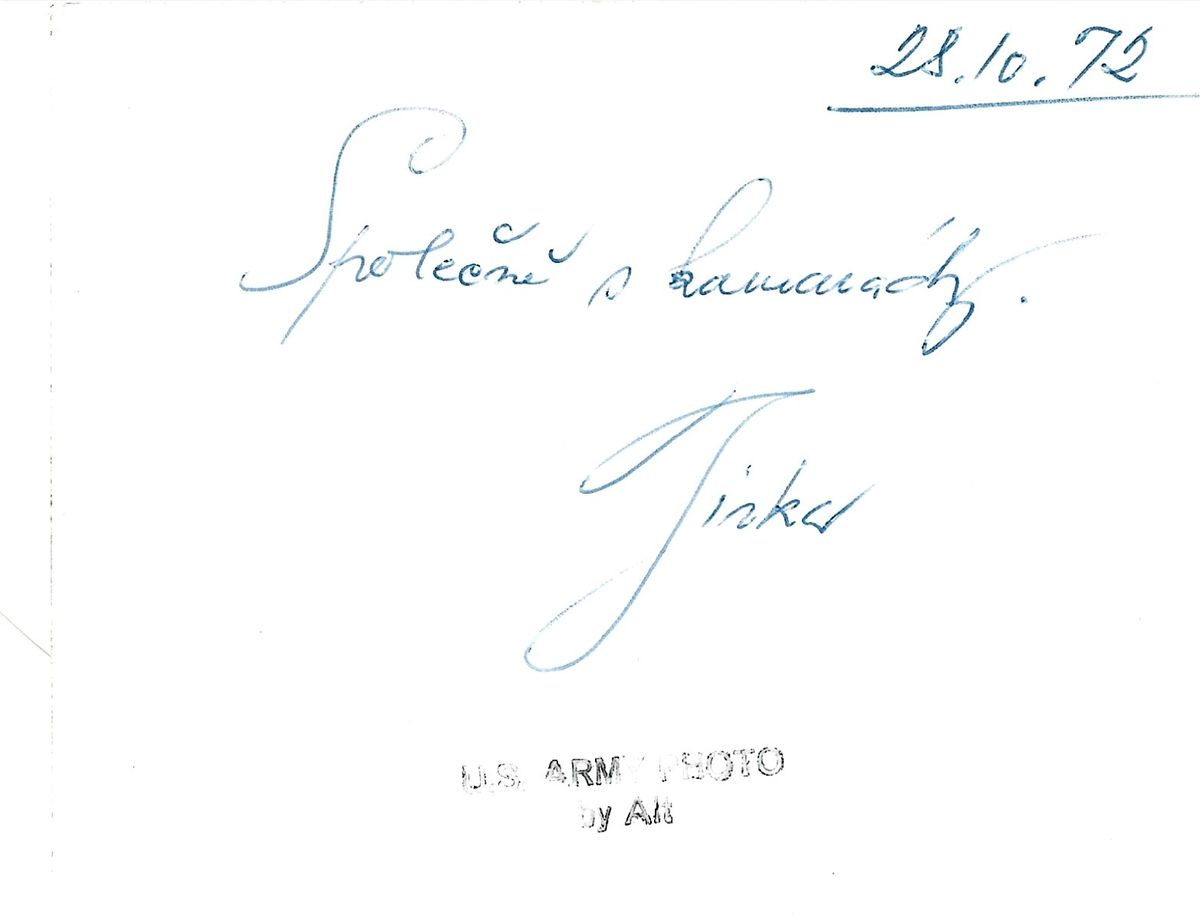 28.10.72
Společně s kamarády.
Jirka
U.S. ARMY PHOTO
by Alt